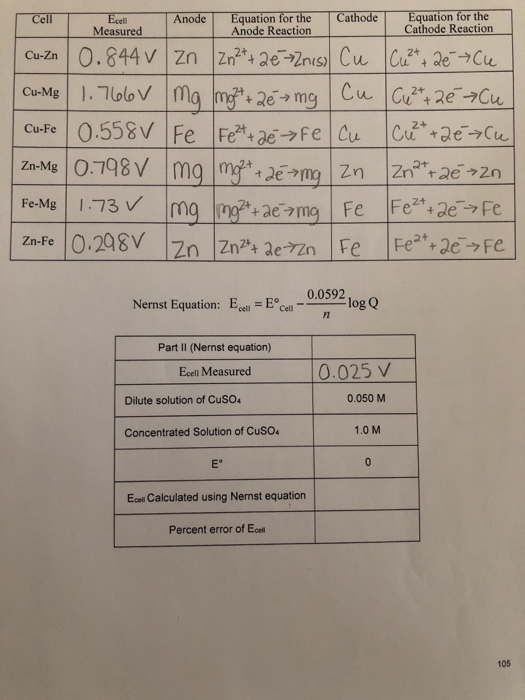 Cell Ecell Measured Anode Equation for the Anode Reaction Cathode Equation for the Cathode Reaction
Cu-Zn 0.844 V Zn Zn²⁺ + 2e⁻ → Zn(s) Cu Cu²⁺ + 2e⁻ → Cu
Cu-Mg 1.766 V Mg Mg²⁺ + 2e⁻ → Mg Cu Cu²⁺ + 2e⁻ → Cu
Cu-Fe 0.558 V Fe Fe²⁺ + 2e⁻ → Fe Cu Cu²⁺ + 2e⁻ → Cu
Zn-Mg 0.798 V Mg Mg²⁺ + 2e⁻ → Mg Zn Zn²⁺ + 2e⁻ → Zn
Fe-Mg 1.73 V Mg Mg²⁺ + 2e⁻ → Mg Fe Fe²⁺ + 2e⁻ → Fe
Zn-Fe 0.298 V Zn Zn²⁺ + 2e⁻ → Zn Fe Fe²⁺ + 2e⁻ → Fe
Nernst Equation: E cell = E° Cell − 0.0592/n log Q
Part II (Nernst equation)
Ecell Measured 0.025 V
Dilute solution of CuSO₄ 0.050 M
Concentrated Solution of CuSO₄ 1.0 M
E° 0
Ecell Calculated using Nernst equation
Percent error of Ecell
105